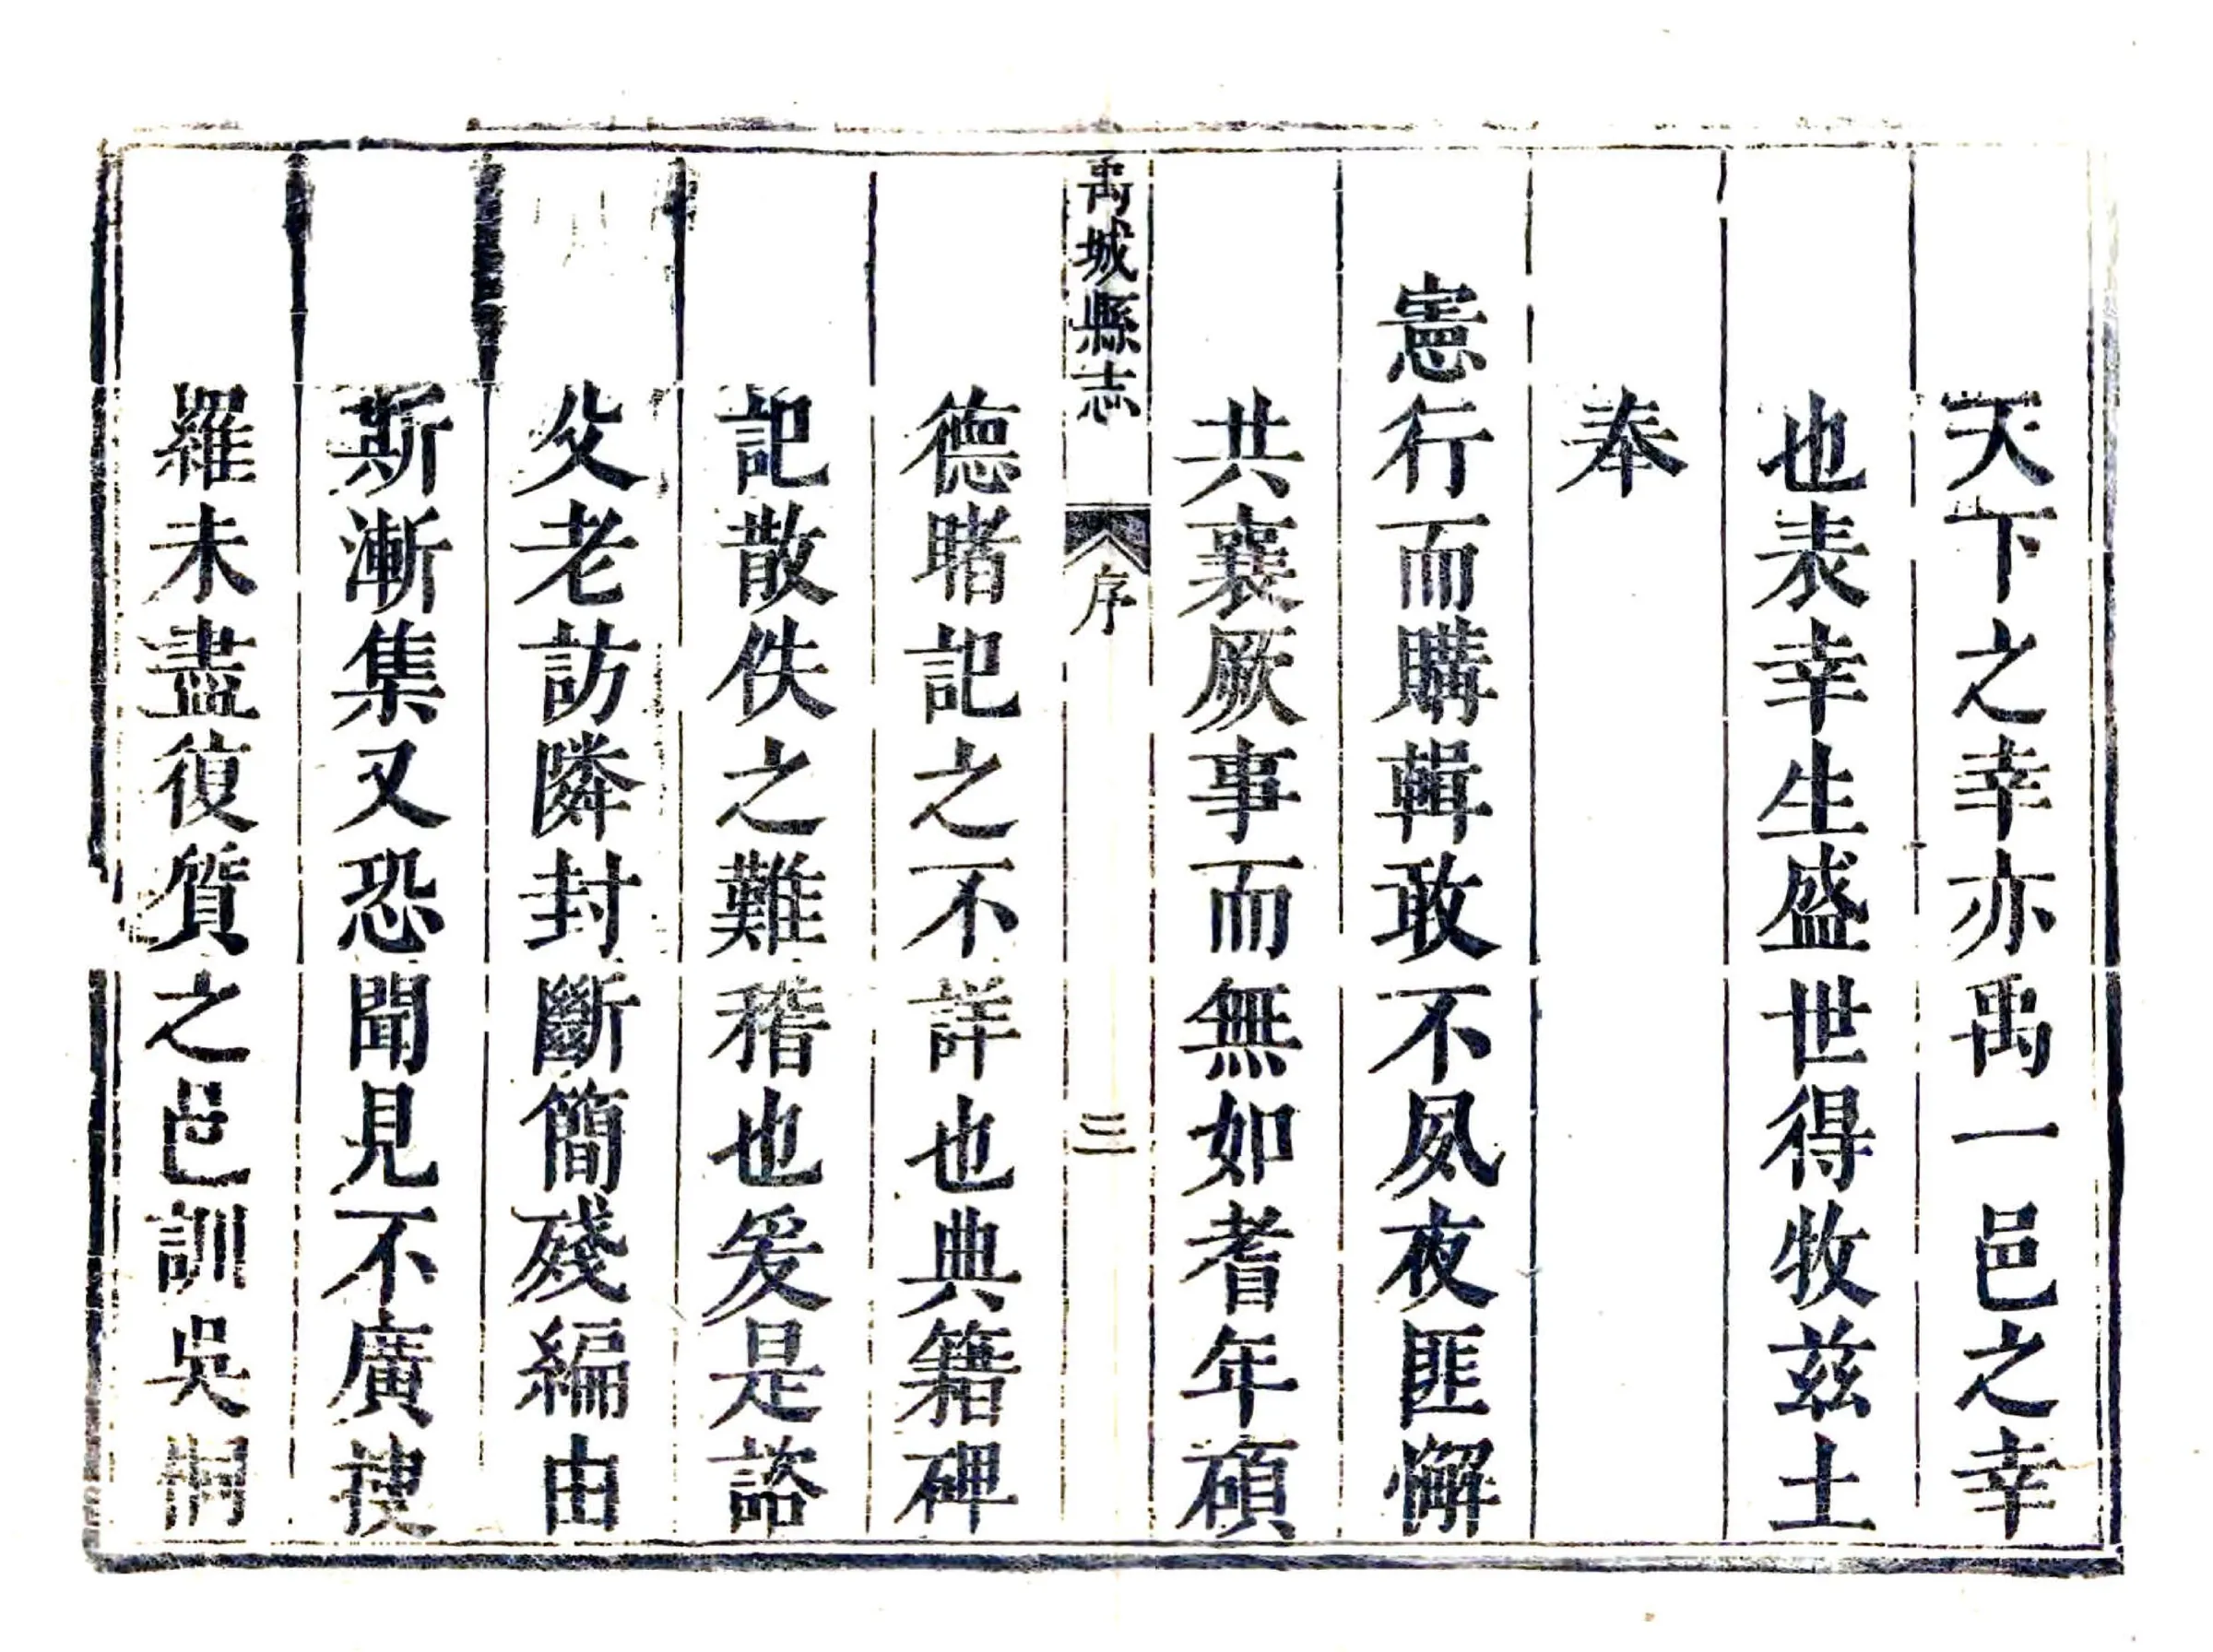 天下之幸亦禹一邑之幸
也表幸生盛世得牧茲土
奉
憲行而購輯敢不夙夜匪懈
共襄厥事而無如耆年碩
禹城縣志 序 三
德睹記之不詳也典籍碑
記散佚之難稽也爰是諮
父老訪隣封斷簡殘編由
斯漸集又恐聞見不廣搜
羅未盡復質之邑訓吳